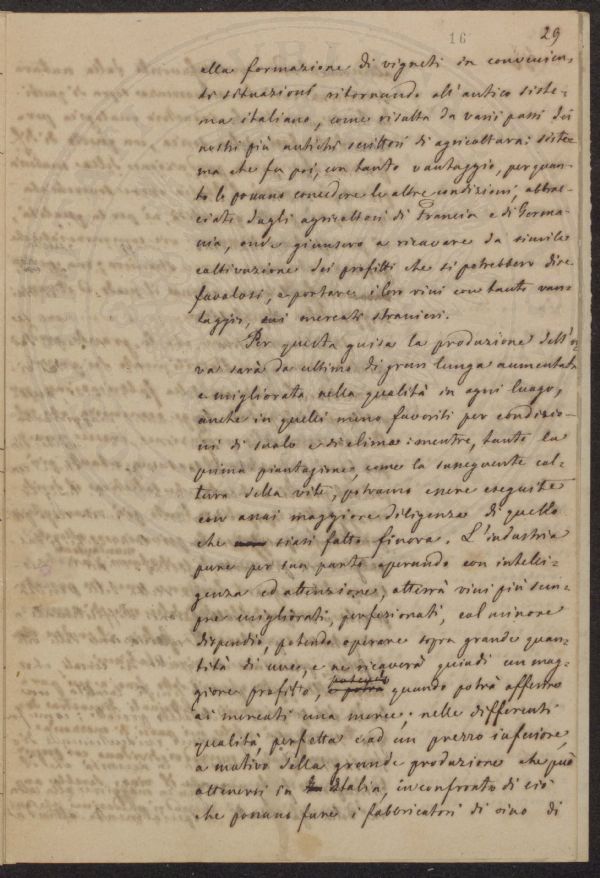 16 29
alla formazione di vigneti in convenien-
ti situazioni ritornando all'antico siste-
ma italiano, come risulta da varii passi dei
nostri più antichi scrittori di agricoltura: siste-
ma che fu poi, con tanto vantaggio, per quan-
to le possano concedere le altre condizioni, abbrac-
ciato dagli agricoltori di Francia e di Germa-
nia, onde giunsero a ricavare da simile
coltivazione dei profitti che si potrebbero dire
favolosi, e portare i loro vini con tanto van-
taggio, sui mercati stranieri.
Per questa guisa la produzione dell'u-
va sarà da ultimo di gran lunga aumentata
e migliorata nella qualità in ogni luogo,
anche in quelli meno favoriti per condizio-
ni di suolo e di clima: mentre, tanto la
prima piantagione, come la susseguente col-
tura della vite, potranno essere eseguite
con assai maggiore diligenza di quello
che siasi fatto finora. L'industria
pure per sua parte operando con intelli-
genza ed attenzione, otterrà vini più sem-
pre migliorati, perfezionati, col minore
dispendio, potendo operare sopra grande quan-
tità di uve, e ne ricaverà quindi un mag-
giore profitto, e potrà quando potrà offerire
ai mercati una merce, nelle differenti
qualità, perfetta e ad un prezzo inferiore,
a motivo della grande produzione che può
ottenersi in Italia, in confronto di ciò
che possano fare i fabbricatori di vino di